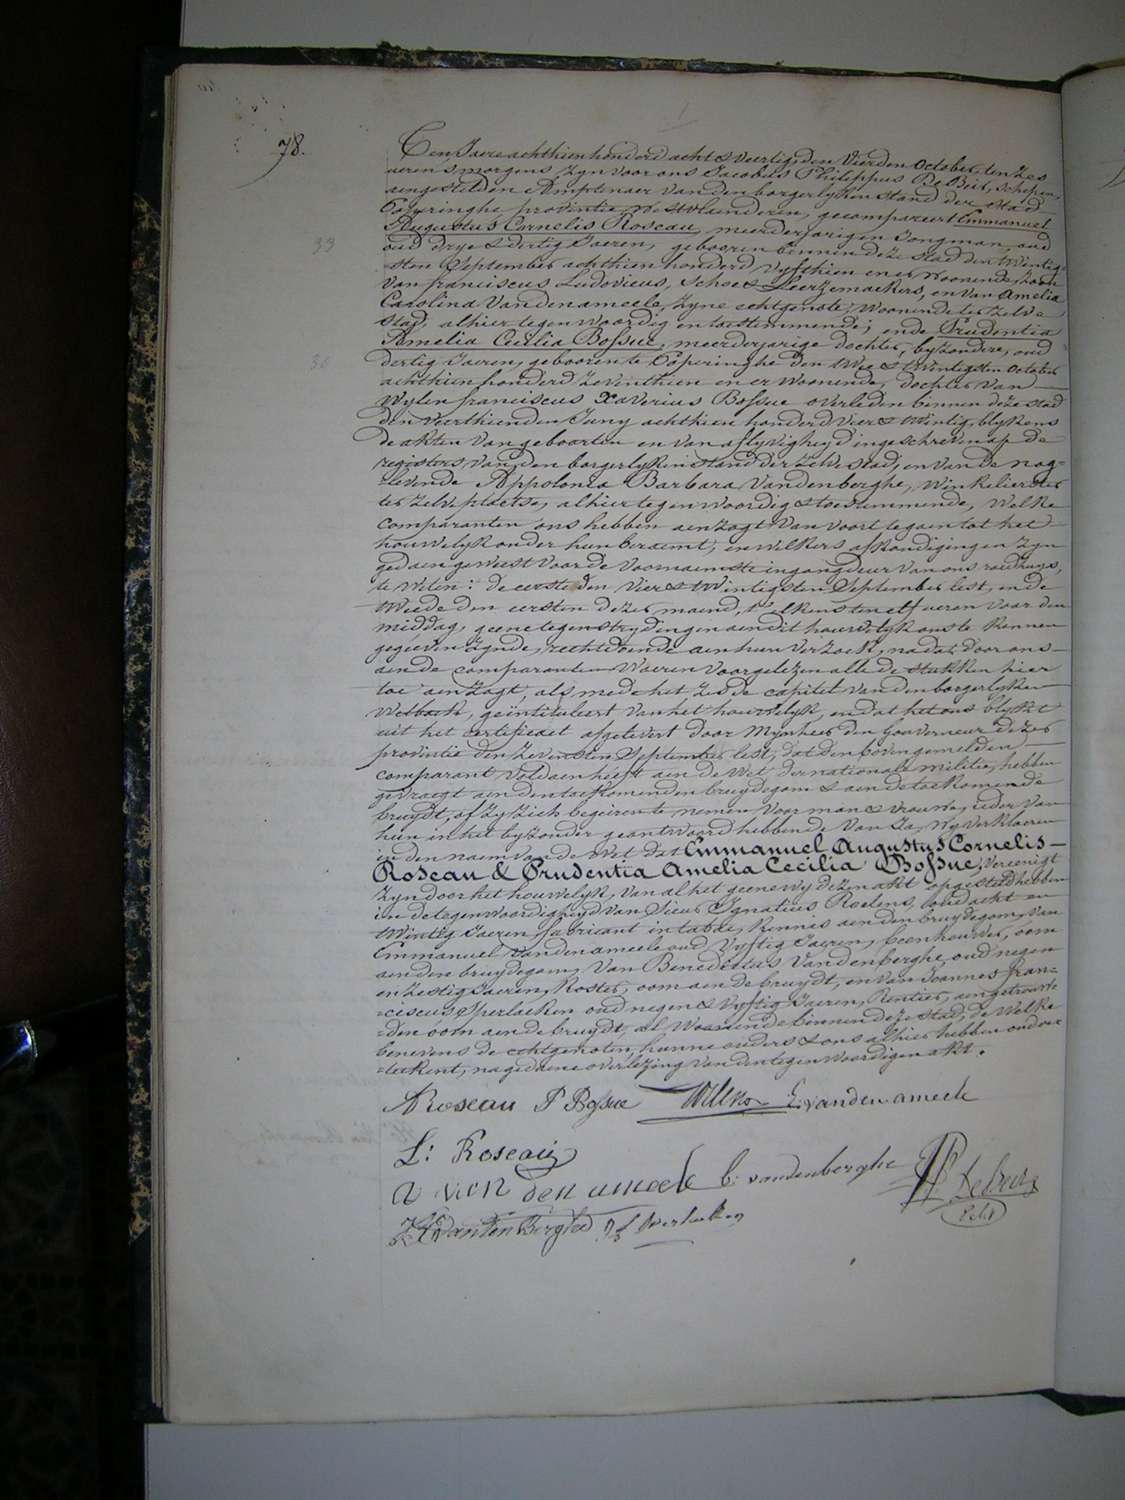 78.
Ten Jaere achthien honderd acht & veertig, den Vierden October, ten zes
ueren s'morgens zyn voor ons Jacobus Philippus De Beir, schepen,
aengestelden Amptenaer van den borgerlyken stand der stad
Poperinghe provintie Westvlanderen, gecompareert Emmanuel
Augustus Cornelis Roseau, meerderjarigen Jongman, oud
33
oud drye & dertig Jaeren, gebooren binnen deze stad den twintig-
sten September achthien honderd vyfthien en er woonende, zoon
van franciscus Ludovicus, schoen-Leerzemaekers, en van Amelia
Carolina Vandenameele, zyne echtgenote, woonende ter zelve
stad, alhier tegenwoordig en toestemmende; ende Prudentia
Amelia Cecilia Bossue, meerderjarige dochter, byzondere, oud
30
dertig Jaeren, gebooren te Poperinghe den twee & twintigsten october
achthien honderd zeventhien en er woonende, dochter van
wylen franciscus Xaverius Bossue overleden binnen deze stad
den veerthienden Juny achthien honderd vier & twintig, blykens
de akten van geboorten en van aflyvigheyd ingeschreven op de
registers van den borgerlyken stand der zelve stad, en van de nog-
levende Appolonia Barbara Vandenberghe, winkelierster
ter zelve plaetse, alhier tegenwoordig & toestemmende, welke
comparanten ons hebben aenzogt van voort te gaen tot het
houwelyk onder hun beraemt, en welkers afkondigingen zyn
gedaen geweest voor de voornaemste ingangdeur van ons raedhuys,
te weten: de eerste den vier & twintigsten September lest, en de
tweede den eersten dezer maend, t'elkens ten elf ueren voor den
middag, geene tegenstrydingen aen dit houwelyk ons te kennen
gegeven zynde, rechtdoende aen hun verzoek, na dat door ons
aen de comparanten waeren voorgelezen alle de stukken hier
toe aenzogt, als mede het zesde capitel van den borgerlyken
Wetboek, geïntituleert van het houwelyk, en dat het ons blykt
uit het certificaet afgelevert door Mynheer den Gouverneur dezer
provintie den zevensten September lest, dat den bovengemelden
comparant voldaen heeft aen de Wet der nationale militie, hebben
gevraegt aen den toekomenden bruydegom & aen de toekomende
bruydt, of zy zich begeeren te nemen voor man & vrouw, ieder van
hun in het byzonder geantwoord hebbende van Ja, Wy verklaeren
in den naem van de Wet dat Emmanuel Augustus Cornelis
Roseau & Prudentia Amelia Cecilia Bossue, vereenigt
zyn door het houwelyk, van al het geene wy dezen akt opgesteld hebben
in de tegenwoordigheyd van Sieur Ignatius Roelens, oud acht en
twintig Jaeren, fabricant in tabac, kennis aen den bruydegom, van
Emmanuel Vandenameele oud vyftig Jaeren, beenhouwer, oom
aen den bruydegom, Van Benedictus Vandenberghe, oud negen
en zestig Jaeren, Koster, oom aen de bruydt, en van Joannes fran-
ciscus Sperlaeken oud negen & vyftig Jaeren, Rentier, aengetrouwde
den oom aen de bruydt, al woonende binnen deze stad, de welke
benevens de echtgenoten, hunne ouders & ons alhier hebben onder-
teekent, na gedaene overlezing van den tegenwoordigen akt.
A Roseau P Bossue E. vandenameele
L: Roseau
A van den ameele b. vandenberghe
DeBeir